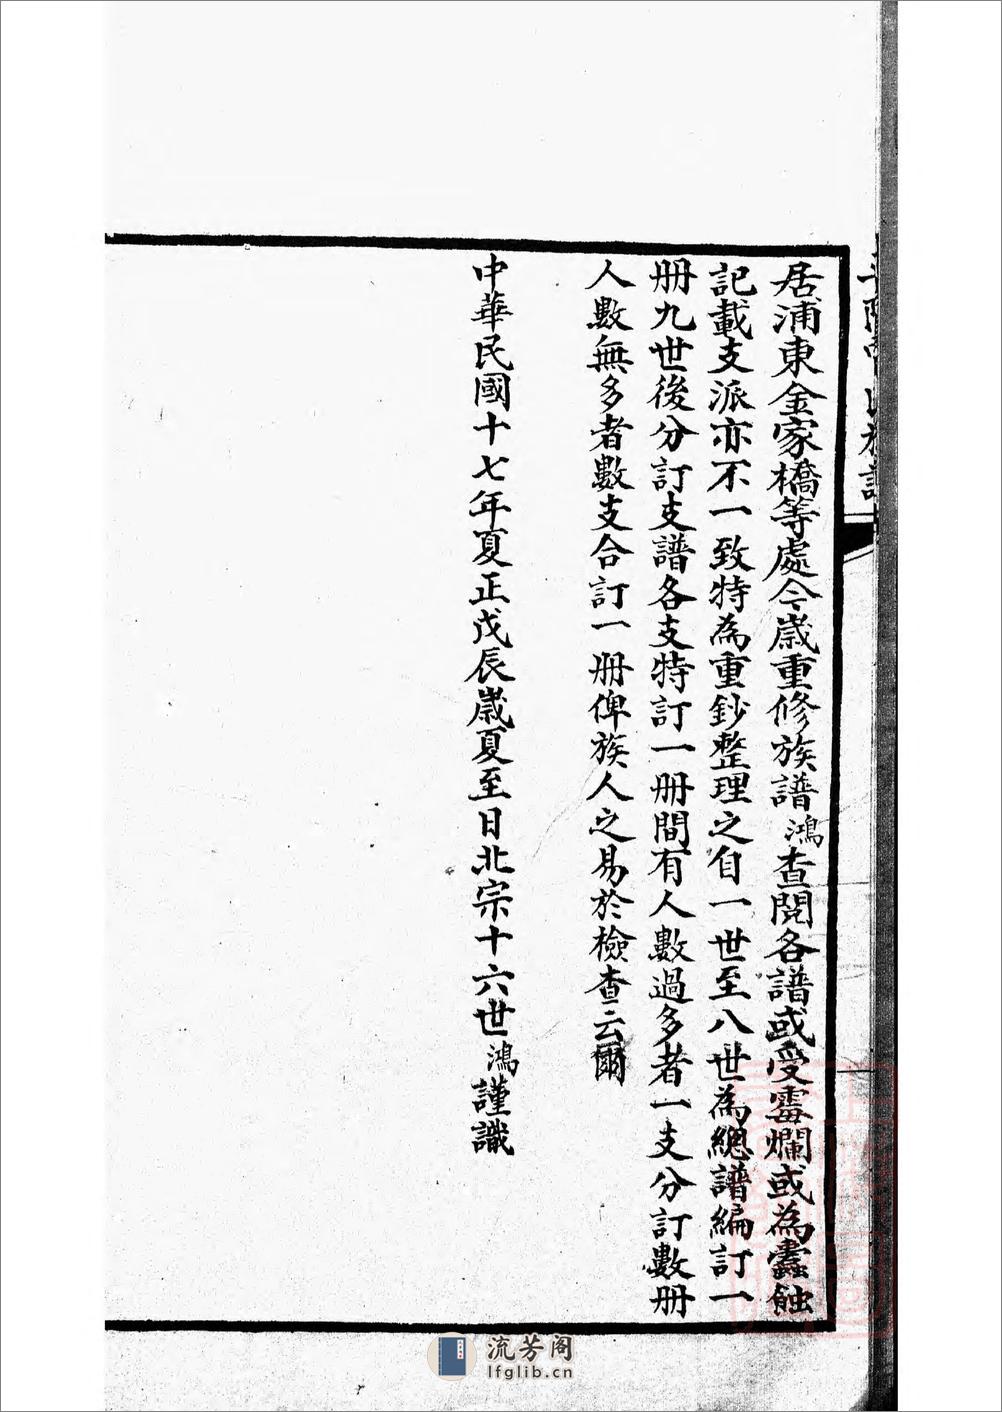 居浦東金家橋等處今歲重修族譜鴻查閱各譜或受霉爛或為蠹蝕
記載支派亦不一致特為重鈔整理之自一世至八世為總譜編訂一
册九世後分訂支譜各支特訂一册間有人數過多者一支分訂數册
人數無多者數支合訂一册俾族人之易於檢查云爾
中華民國十七年夏正戊辰歲夏至日北宗十六世鴻謹識
流芳阁
lfglib.cn